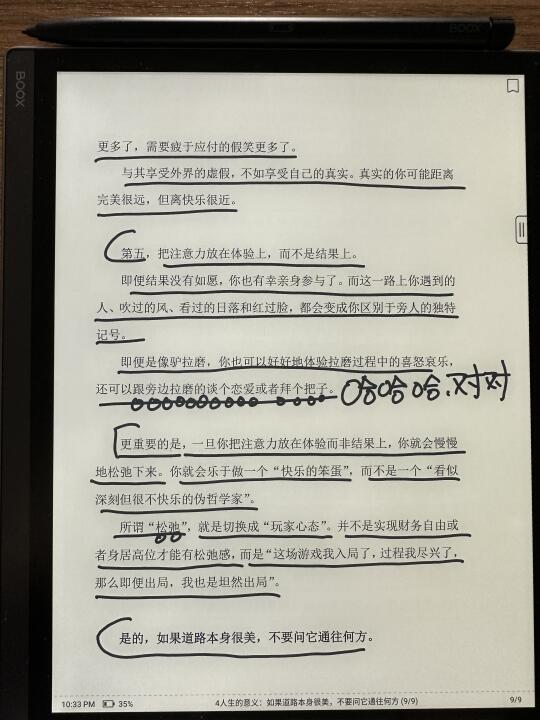 BOOX
BOOX
更多了，需要疲于应付的假笑更多了。
与其享受外界的虚假，不如享受自己的真实。真实的你可能距离
完美很远，但离快乐很近。
第五，把注意力放在体验上，而不是结果上。
即便结果没有如愿，你也有幸亲身参与了。而这一路上你遇到的
人、吹过的风、看过的日落和红过脸，都会变成你区别于旁人的独特
记号。
即便是像驴拉磨，你也可以好好地体验拉磨过程中的喜怒哀乐，
还可以跟旁边拉磨的谈个恋爱或者拜个把子。哈哈哈，对对
更重要的是，一旦你把注意力放在体验而非结果上，你就会慢慢
地松弛下来。你就会乐于做一个“快乐的笨蛋”，而不是一个“看似
深刻但很不快乐的伪哲学家”。
所谓“松弛”，就是切换成“玩家心态”。并不是实现财务自由或
者身居高位才能有松弛感，而是“这场游戏我入局了，过程我尽兴了，
那么即便出局，我也是坦然出局”。
是的，如果道路本身很美，不要问它通往何方。
10:33 PM 35% 4人生的意义：如果道路本身很美，不要问它通往何方 (9/9) 9/9